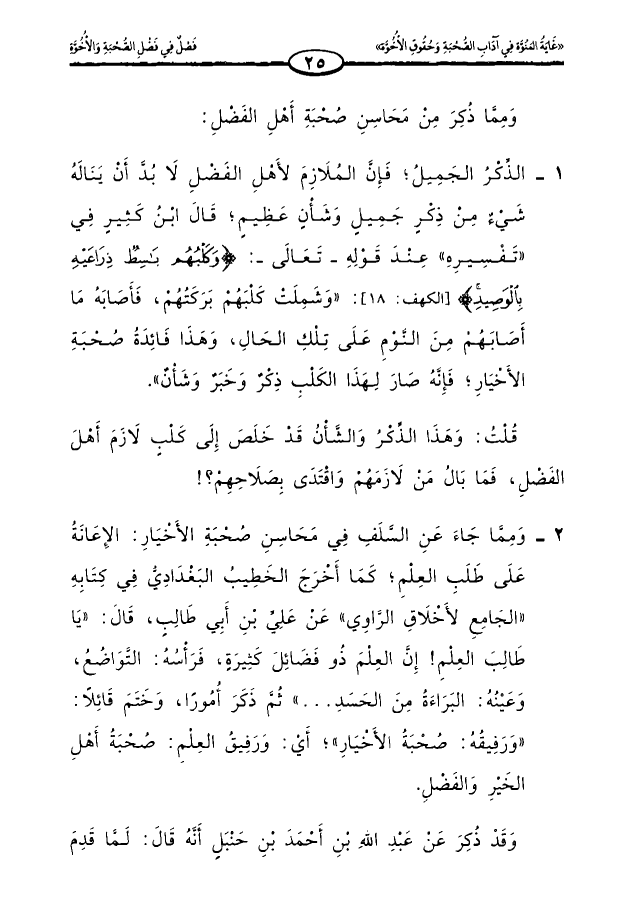 فَصْلٌ فِي فَضْلِ الصُّحْبَةِ وَالأُخُوَّةِ
٢٥
«غَايَةُ المَنُوَّه فِي آدَابِ الصُّحْبَةِ وَحُقُوقِ الأُخُوَّة»
وَمِمَّا ذُكِرَ مِنْ مَحَاسِنِ صُحْبَةِ أَهْلِ الفَضْلِ:
١ ـ الذِّكْرُ الجَمِيلُ؛ فَإِنَّ المُلَازِمَ لأَهْلِ الفَضْلِ لَا بُدَّ أَنْ يَنَالَهُ
شَيْءٌ مِنْ ذِكْرٍ جَمِيلٍ وَشَأْنٍ عَظِيمٍ؛ قَالَ ابْنُ كَثِيرٍ فِي
«تَفْسِيرِهِ» عِنْدَ قَوْلِهِ ـ تَعَالَى ـ: ﴿وَكَلْبُهُم بَٰسِطٌ ذِرَاعَيْهِ
بِٱلْوَصِيدِ﴾ [الكهف: ١٨]: «وَشَمِلَتْ كَلْبَهُمْ بَرَكَتُهُمْ، فَأَصَابَهُ مَا
أَصَابَهُمْ مِنَ النَّوْمِ عَلَى تِلْكَ الحَالِ، وَهَذَا فَائِدَةُ صُحْبَةِ
الأَخْيَارِ؛ فَإِنَّهُ صَارَ لِهَذَا الكَلْبِ ذِكْرٌ وَخَبَرٌ وَشَأْنٌ».
قُلْتُ: وَهَذَا الذِّكْرُ وَالشَّأْنُ قَدْ خَلَصَ إِلَى كَلْبٍ لَازَمَ أَهْلَ
الفَضْلِ، فَمَا بَالُ مَنْ لَازَمَهُمْ وَاقْتَدَى بِصَلَاحِهِمْ؟!
٢ ـ وَمِمَّا جَاءَ عَنِ السَّلَفِ فِي مَحَاسِنِ صُحْبَةِ الأَخْيَارِ: الإِعَانَةُ
عَلَى طَلَبِ العِلْمِ؛ كَمَا أَخْرَجَ الخَطِيبُ البَغْدَادِيُّ فِي كِتَابِهِ
«الجَامِعِ لأَخْلَاقِ الرَّاوِي» عَنْ عَلِيِّ بْنِ أَبِي طَالِبٍ، قَالَ: «يَا
طَالِبَ العِلْمِ! إِنَّ العِلْمَ ذُو فَضَائِلَ كَثِيرَةٍ، فَرَأْسُهُ: التَّوَاضُعُ،
وَعَيْنُهُ: البَرَاءَةُ مِنَ الحَسَدِ...» ثُمَّ ذَكَرَ أُمُورًا، وَخَتَمَ قَائِلًا:
«وَرَفِيقُهُ: صُحْبَةُ الأَخْيَارِ»؛ أَيْ: وَرَفِيقُ العِلْمِ: صُحْبَةُ أَهْلِ
الخَيْرِ وَالفَضْلِ.
وَقَدْ ذُكِرَ عَنْ عَبْدِ اللهِ بْنِ أَحْمَدَ بْنِ حَنْبَلٍ أَنَّهُ قَالَ: لَمَّا قَدِمَ